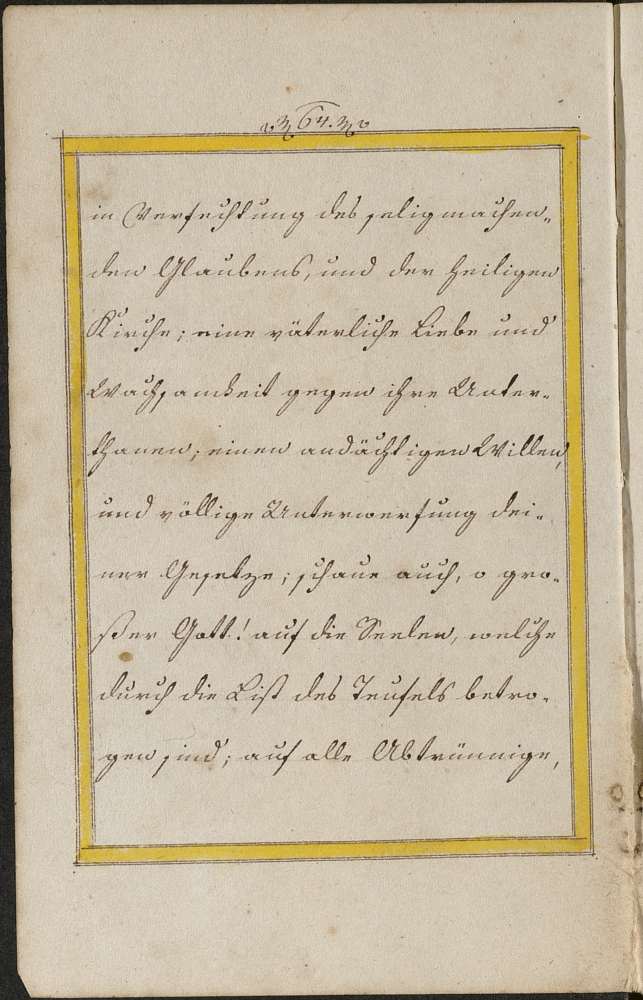 64.
in Verfechtung des seligmachen-
den Glaubens, und der heiligen
Kirche; eine väterliche Liebe und
Wachsamkeit gegen ihre Unter-
thanen; einen andächtigen Willen,
und völlige Unterwerfung dei-
ner Gesetze; schaue auch, o gro-
ßer Gott! auf die Seelen, welche
durch die List des Teufels betro-
gen sind; auf alle Abtrünnige,